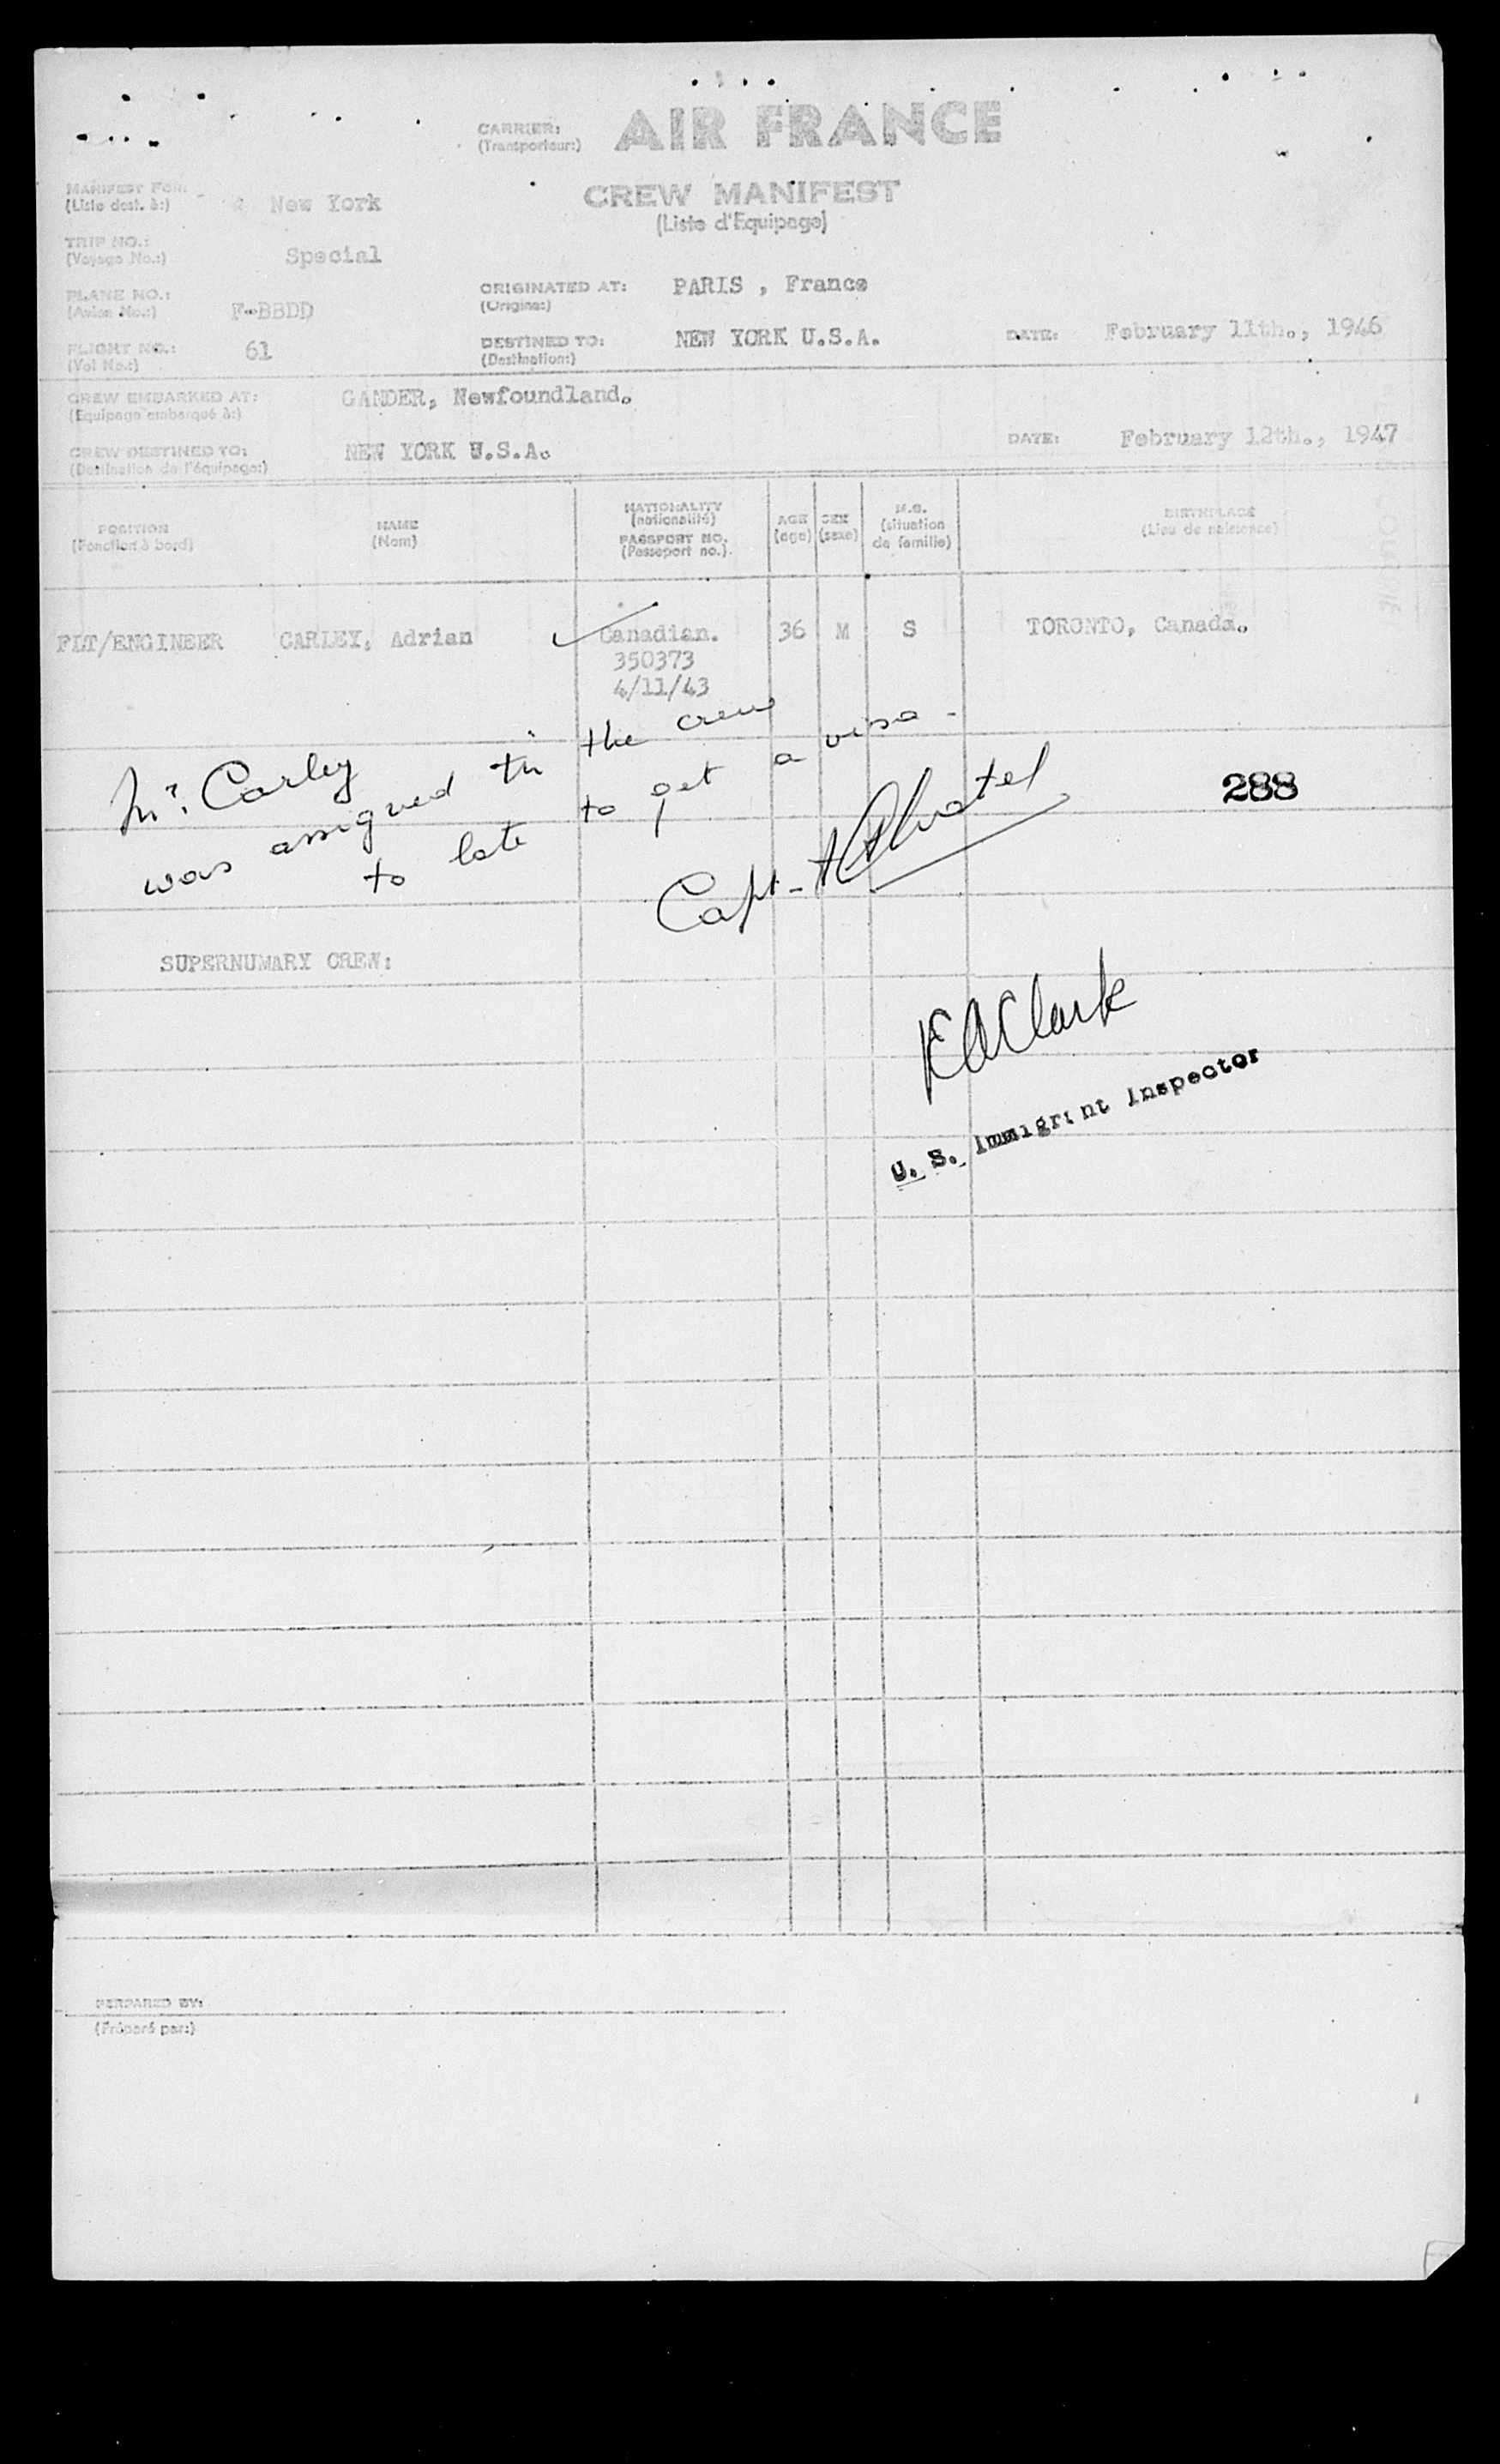 CARRIER: AIR FRANCE
(Transporteur:)
MANIFEST FOR: New York
(Liste dest. à:)
CREW MANIFEST
(Liste d'Equipage)
TRIP NO.: Special
(Voyage No.:)
PLANE NO.: F-BBDD
(Avion No.:)
ORIGINATED AT: PARIS , France
(Origine:)
FLIGHT NO.: 61
(Vol No.:)
DESTINED TO: NEW YORK U.S.A.
(Destination:)
DATE: February 11th., 1946
CREW EMBARKED AT: GANDER, Newfoundland.
(Equipage embarqué à:)
CREW DESTINED TO: NEW YORK U.S.A.
(Destination de l'équipage:)
DATE: February 12th., 1947
POSITION
(Fonction à bord)
NAME
(Nom)
NATIONALITY
(nationalité)
PASSPORT NO.
(Passeport no.).
AGE
(age)
SEX
(sexe)
M.S.
(situation
de famille)
BIRTHPLACE
(Lieu de naissance)
FLT/ENGINEER CARLEY, Adrian Canadian. 36 M S TORONTO, Canada.
350373
4/11/43
Mr. Carley
was assigned to the crew
to late to get a visa -
Capt -
288
SUPERNUMARY CREW:
Clark
U. S. Immigrant Inspector
PERPARED BY:
(Préparé par:)